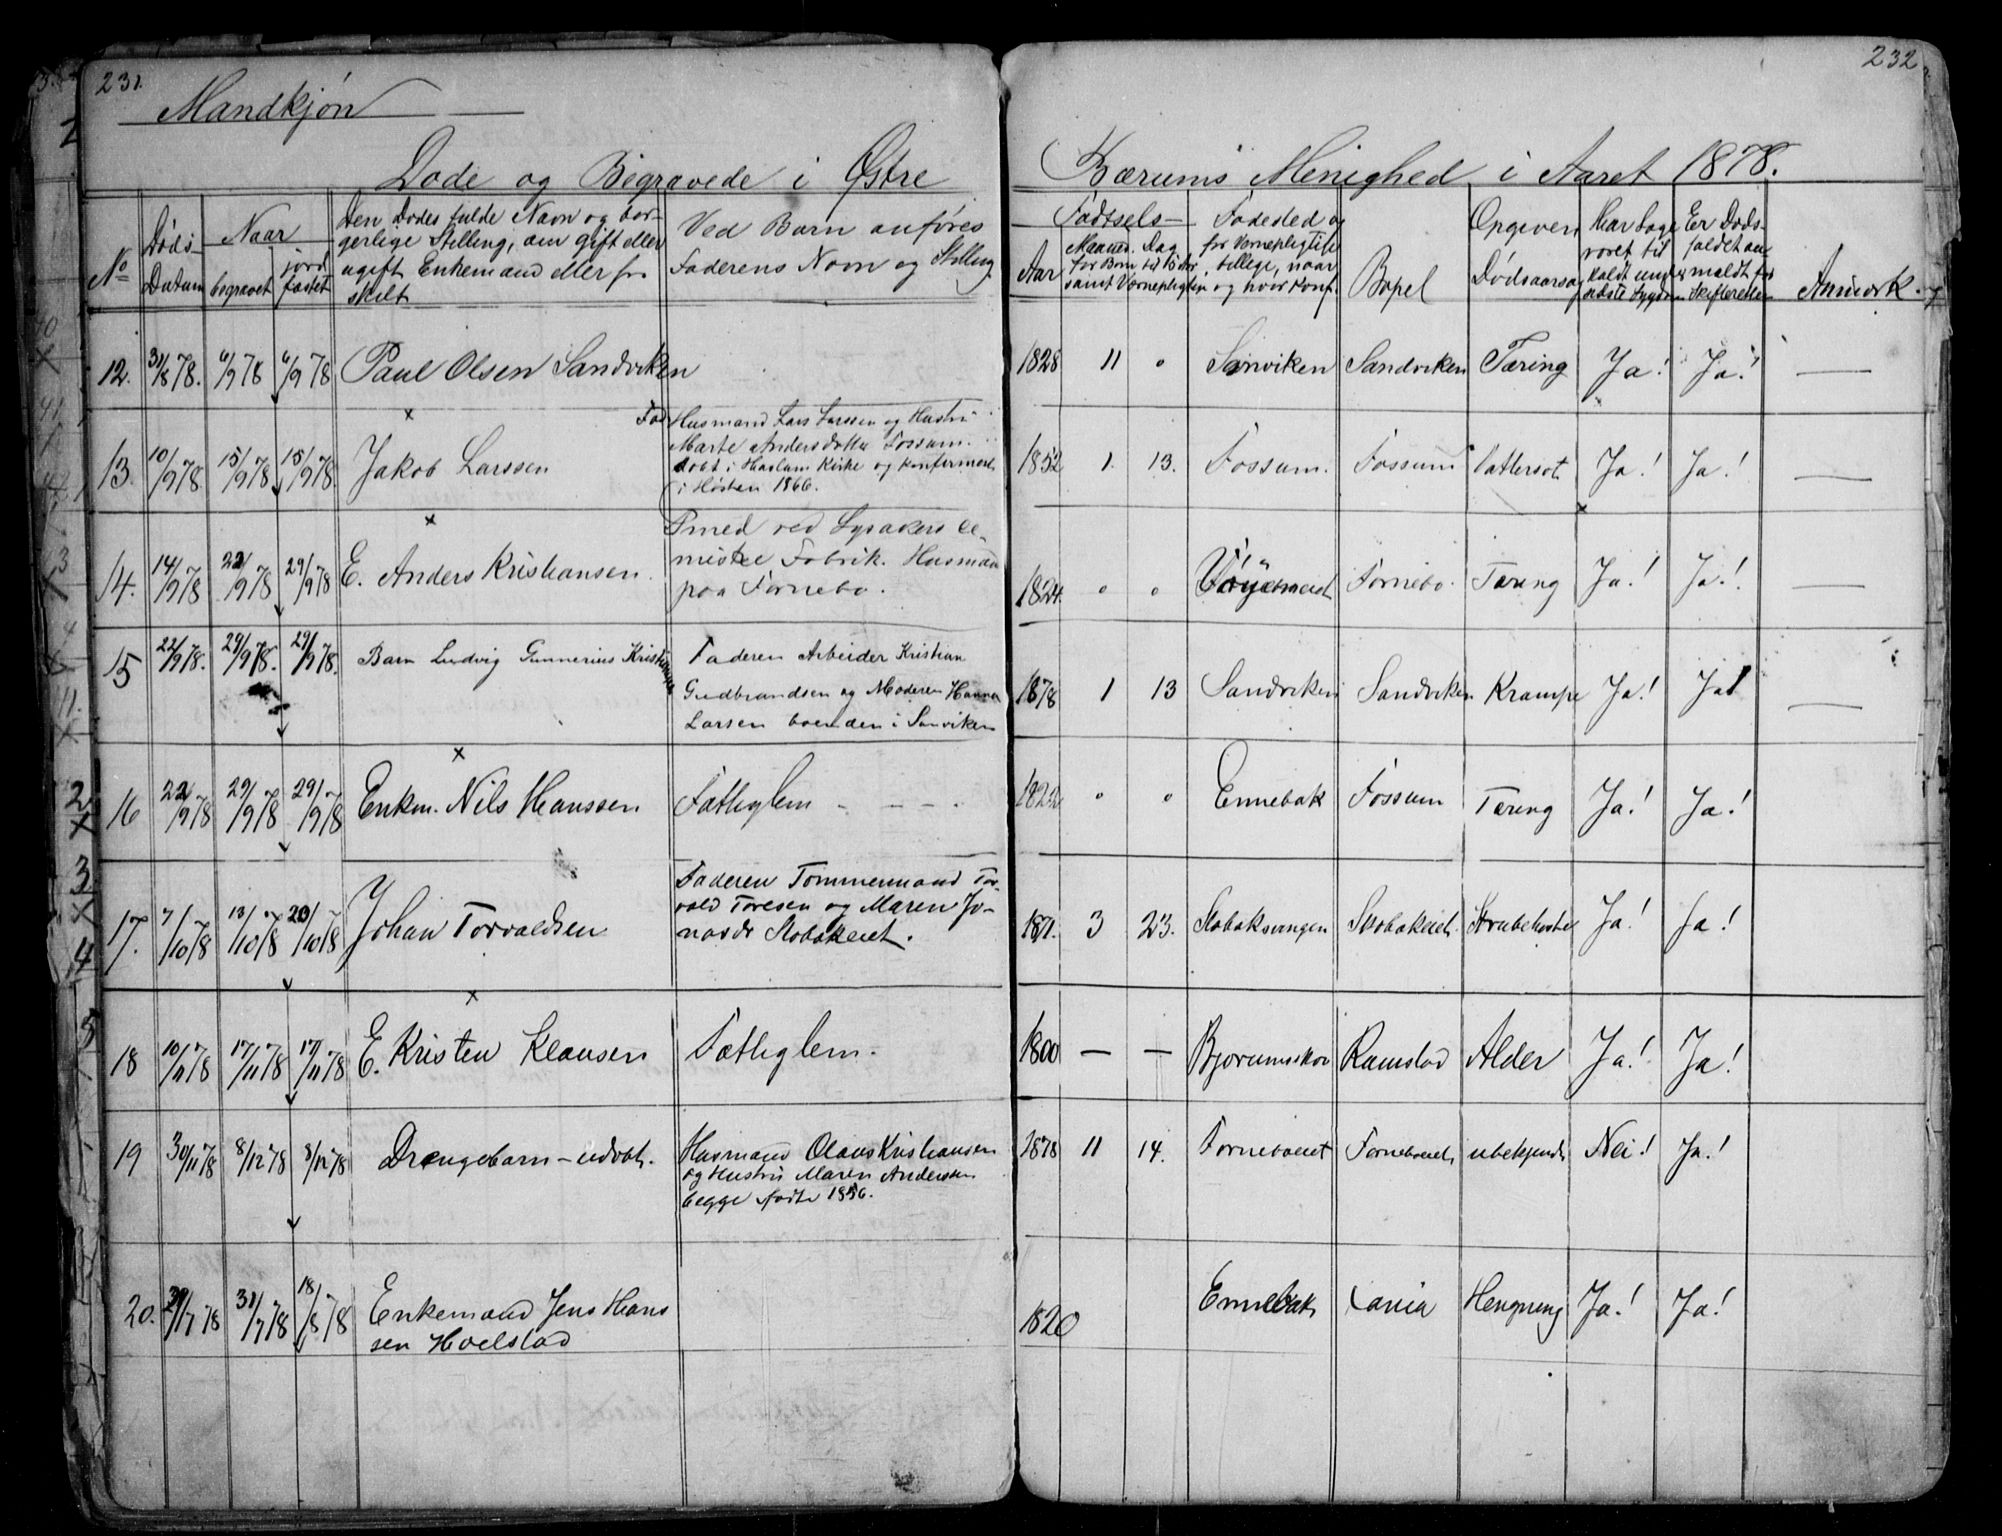 231.
232
Mandkjön
Döde og Begravede i Østre
Bærums Menighed i Aaret 1878.
No
Döds-
Datum
Naar
begravet
jord
fæstet
Den Dødes fulde Navn og bor-
gerlige Stilling, om gift eller
ugift, Enkemand eller fra
skilt
Ved Barn anføres
Faderens Navn og Stilling
Födsels-
Aar
Maaned. Dag
for Børn til 15 Aar
samt Værnepligtige
Fødested og
for Værnepligtige
tillige, naar
og hvor Konf.
Bopel
Opgiven
Dødsaarsag
Har Læge
været til
kaldt under
sidste Sygdom
Er Döds-
faldet an
meldt for
Skifteretten
Anmerk.
12. 31/8 78. 6/9 78 6/9 78 Paul Olsen Sandviken
1828 11 " Sanviken Sandviken Tæring Ja! Ja! —
13. 10/9 78 15/9 78 15/9 78 Jakob Larssen
Husmand Lars Larssen og Hustru
Marte Andersdatter Fossum.
døbt i Haslum Kirke og konfirmeret
i Høsten 1866.
1852 1. 13. Fossum. Fossum Vattersot Ja! Ja! —
14. 14/9 78 22/9 78 29/9 78 E. Anders Kristiansen.
Smed ved Lysakers ce-
miske Fabrik. Husmand
paa Fornebo.
1824. " " Fornebo. Tæring Ja! Ja! —
15 22/9 78. 29/9 78. 29/9 78. Barn Ludvig Gunnerius Kristiansen
Faderen Arbeider Kristian
Gudbrandsen og Moderen Hanna
Larsen boenden i Sanviken
1878 1 13 Sandviken Sandviken Krampe Ja! Ja! —
16 22/9 78 29/9 78 29/9 78 Enkm. Nils Hanssen Fattiglem - - - .
1822 " " Ennebak Fossum Tæring Ja! Ja!
17. 7/10 78 13/10 78 20/10 78 Johan Torvaldsen
Faderen Tømmermand Tor-
vald Toresen og Maren Jo-
nasdr Skobakeiet.
1871. 3 23. Stabaksvingen Skobakeiet. Strubehoste Ja! Ja!
18 10/11 78 17/11 78 17/11 78 E. Kristen Klausen Fattiglem.
1800 — — Bjorumskov Ramstad Alder Ja! Ja!
19 30/11 78 8/12 78 8/12 78 Drengebarn – udøbt.
Husmand Olaus Kristiansen
og Hustru Maren Andersen
begge fødte 1856.
1878 11 14. Forneboeiet Forneboeiet ubekjendt Nei! Ja!
20. 31/7 78 18/8 78 Enkemand Jens Hans
sen Hoelstad
1820 Ennebak Hengning Ja! Ja!